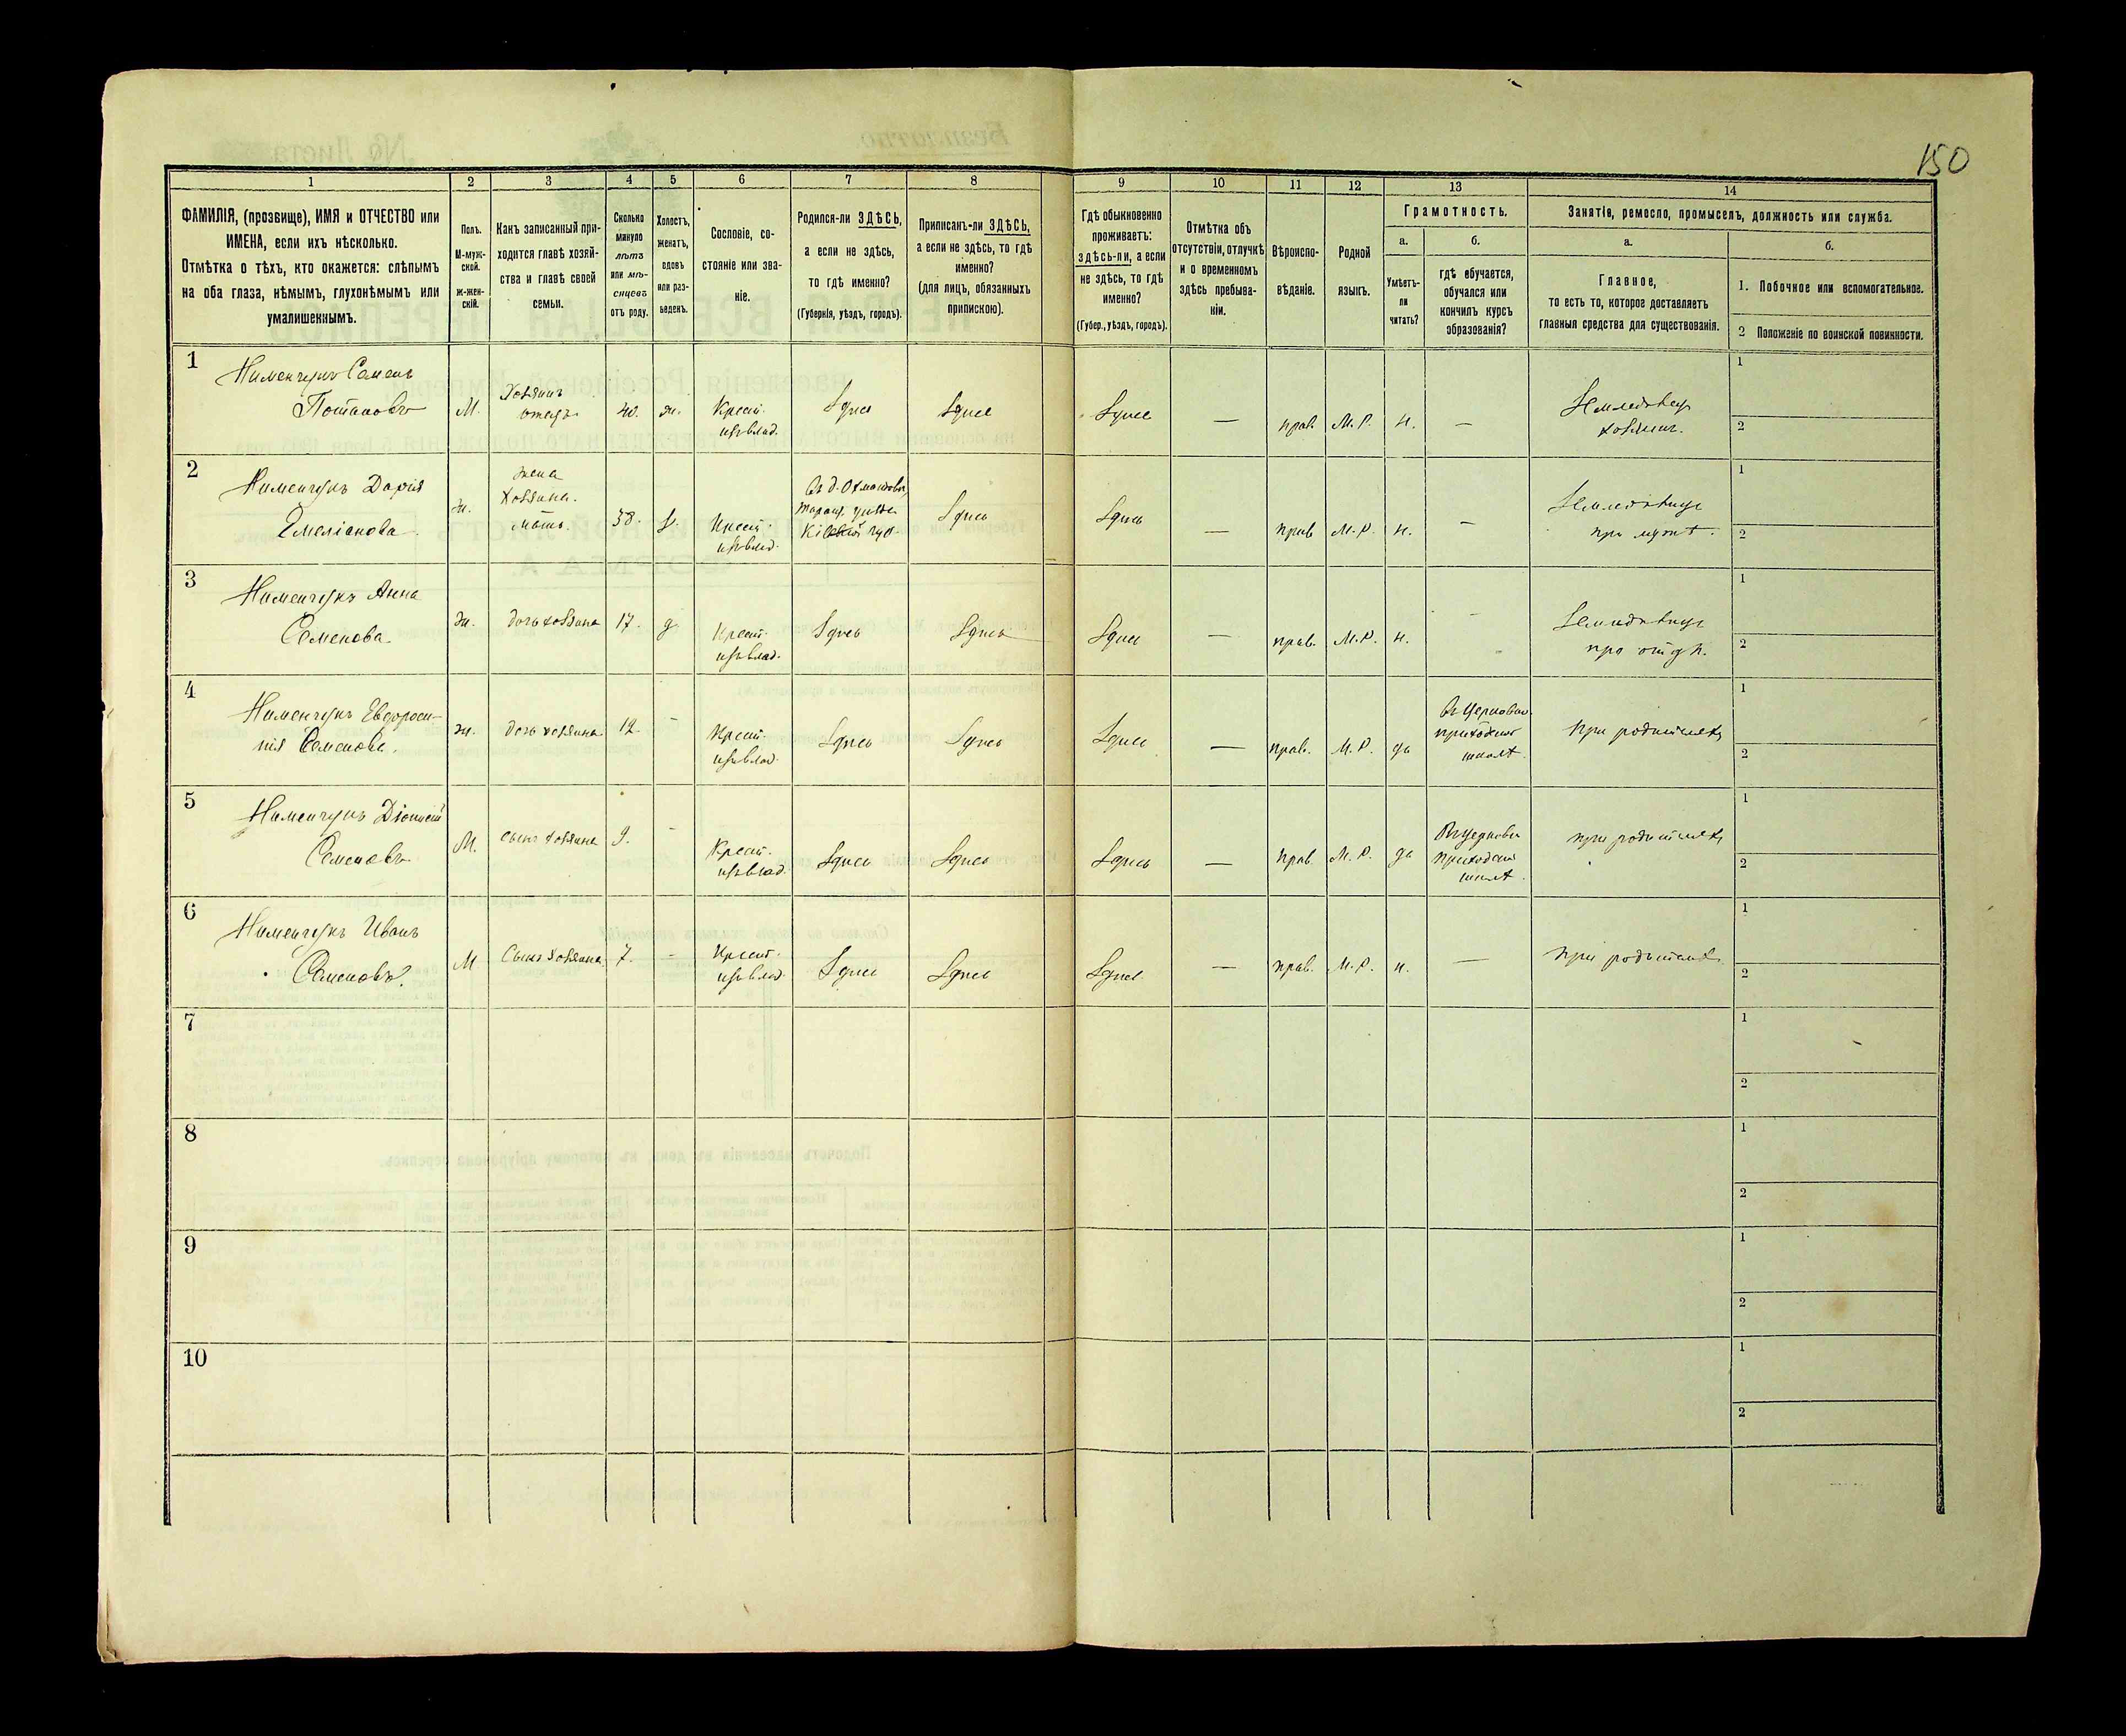 150
1 2 3 4 5 6 7 8 9 10 11 12 13 14
ФАМИЛІЯ, (прозвище), ИМЯ и ОТЧЕСТВО или
ИМЕНА, если ихъ нѣсколько.
Отмѣтка о тѣхъ, кто окажется: слѣпымъ
на оба глаза, нѣмымъ, глухонѣмымъ или
умалишеннымъ.
Полъ.
М-муж-
ской.
ж-жен-
скій.
Какъ записанный при-
ходится главѣ хозяй-
ства и главѣ своей
семьи.
Сколько
минуло
лѣтъ
или мѣ-
сяцевъ
отъ роду.
Холостъ,
женатъ,
вдовъ
или раз-
веденъ.
Сословіе, со-
стояніе или зва-
ніе.
Родился-ли ЗДѢСЬ,
а если не здѣсь,
то гдѣ именно?
(Губернія, уѣздъ, городъ).
Приписанъ-ли ЗДѢСЬ,
а если не здѣсь, то гдѣ
именно?
(для лицъ, обязанныхъ
припискою).
Гдѣ обыкновенно
проживаетъ:
здѣсь-ли, а если
не здѣсь, то гдѣ
именно?
(Губер., уѣздъ, городъ).
Отмѣтка объ
отсутствіи, отлучкѣ
и о временномъ
здѣсь пребыва-
ніи.
Вѣроиспо-
вѣданіе.
Родной
языкъ.
Грамотность.
а.
Умѣетъ-
ли
читать?
б.
гдѣ обучается,
обучался или
кончилъ курсъ
образованія?
Занятія, ремесло, промыселъ, должность или служба.
а.
Главное,
то есть то, которое доставляетъ
главныя средства для существованія.
б.
1. Побочное или вспомогательное.
2 Положеніе по воинской повинности.
1
Нименчукъ Семенъ
Потаповъ
М.
Хозяинъ
отецъ
40.
ж.
Крест.
изъ влад.
Здѣсь
Здѣсь
Здѣсь
—
прав.
М. Р.
н.
—
Земледѣлец
хозяинъ.
1
2
2
Нименчукъ Дарія
Емеліанова
ж.
жена
хозяина.
мать.
38.
з.
Крест.
изъ влад.
Таращ. уѣзда
Кіевской губ.
Здѣсь
Здѣсь
—
прав
М. Р.
н.
—
Земледѣлец
при мужѣ.
1
2
3
Нименчукъ Анна
Семенова
ж.
дочь хозяина
17.
д
Крест.
изъ влад.
Здѣсь
Здѣсь
Здѣсь
—
прав.
М. Р.
н.
-
Земледѣлец
при отцѣ.
1
2
4
Нименчукъ Евфроси-
нія Семенова.
ж.
дочь хозяина
12
-
Крест.
изъ влад.
Здѣсь
Здѣсь
Здѣсь
—
прав.
М. Р.
да
Въ Церковно
приходской
школѣ.
При родителяхъ
1
2
5
Нименчукъ Діонисій
Семеновъ
М.
сынъ хозяина
9.
-
Крест.
изъ влад.
Здѣсь
Здѣсь
Здѣсь
—
прав.
М. Р.
да
Въ церковно
приходской
школѣ.
при родителяхъ
1
2
6
Нименчукъ Иванъ
Семеновъ.
М
Сынъ хозяина.
7.
-
Крест.
изъ влад.
Здѣсь
Здѣсь
Здѣсь
—
прав.
М. Р.
н.
—
при родителяхъ
1
2
7
1
2
8
1
2
9
1
2
10
1
2